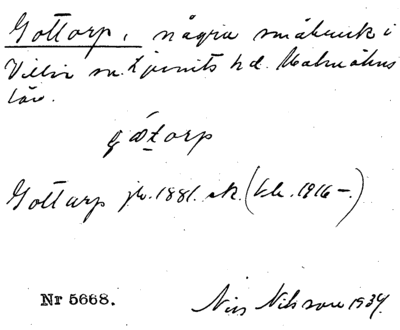 Gottarp, några småbruk i
Villie sn. Ljunits hd. Malmöhus
län.
gåtorp
Gottarp jb. 1881. ek. (tk. 1916–.)
Nr 5668. Nils Nilsson 1934.